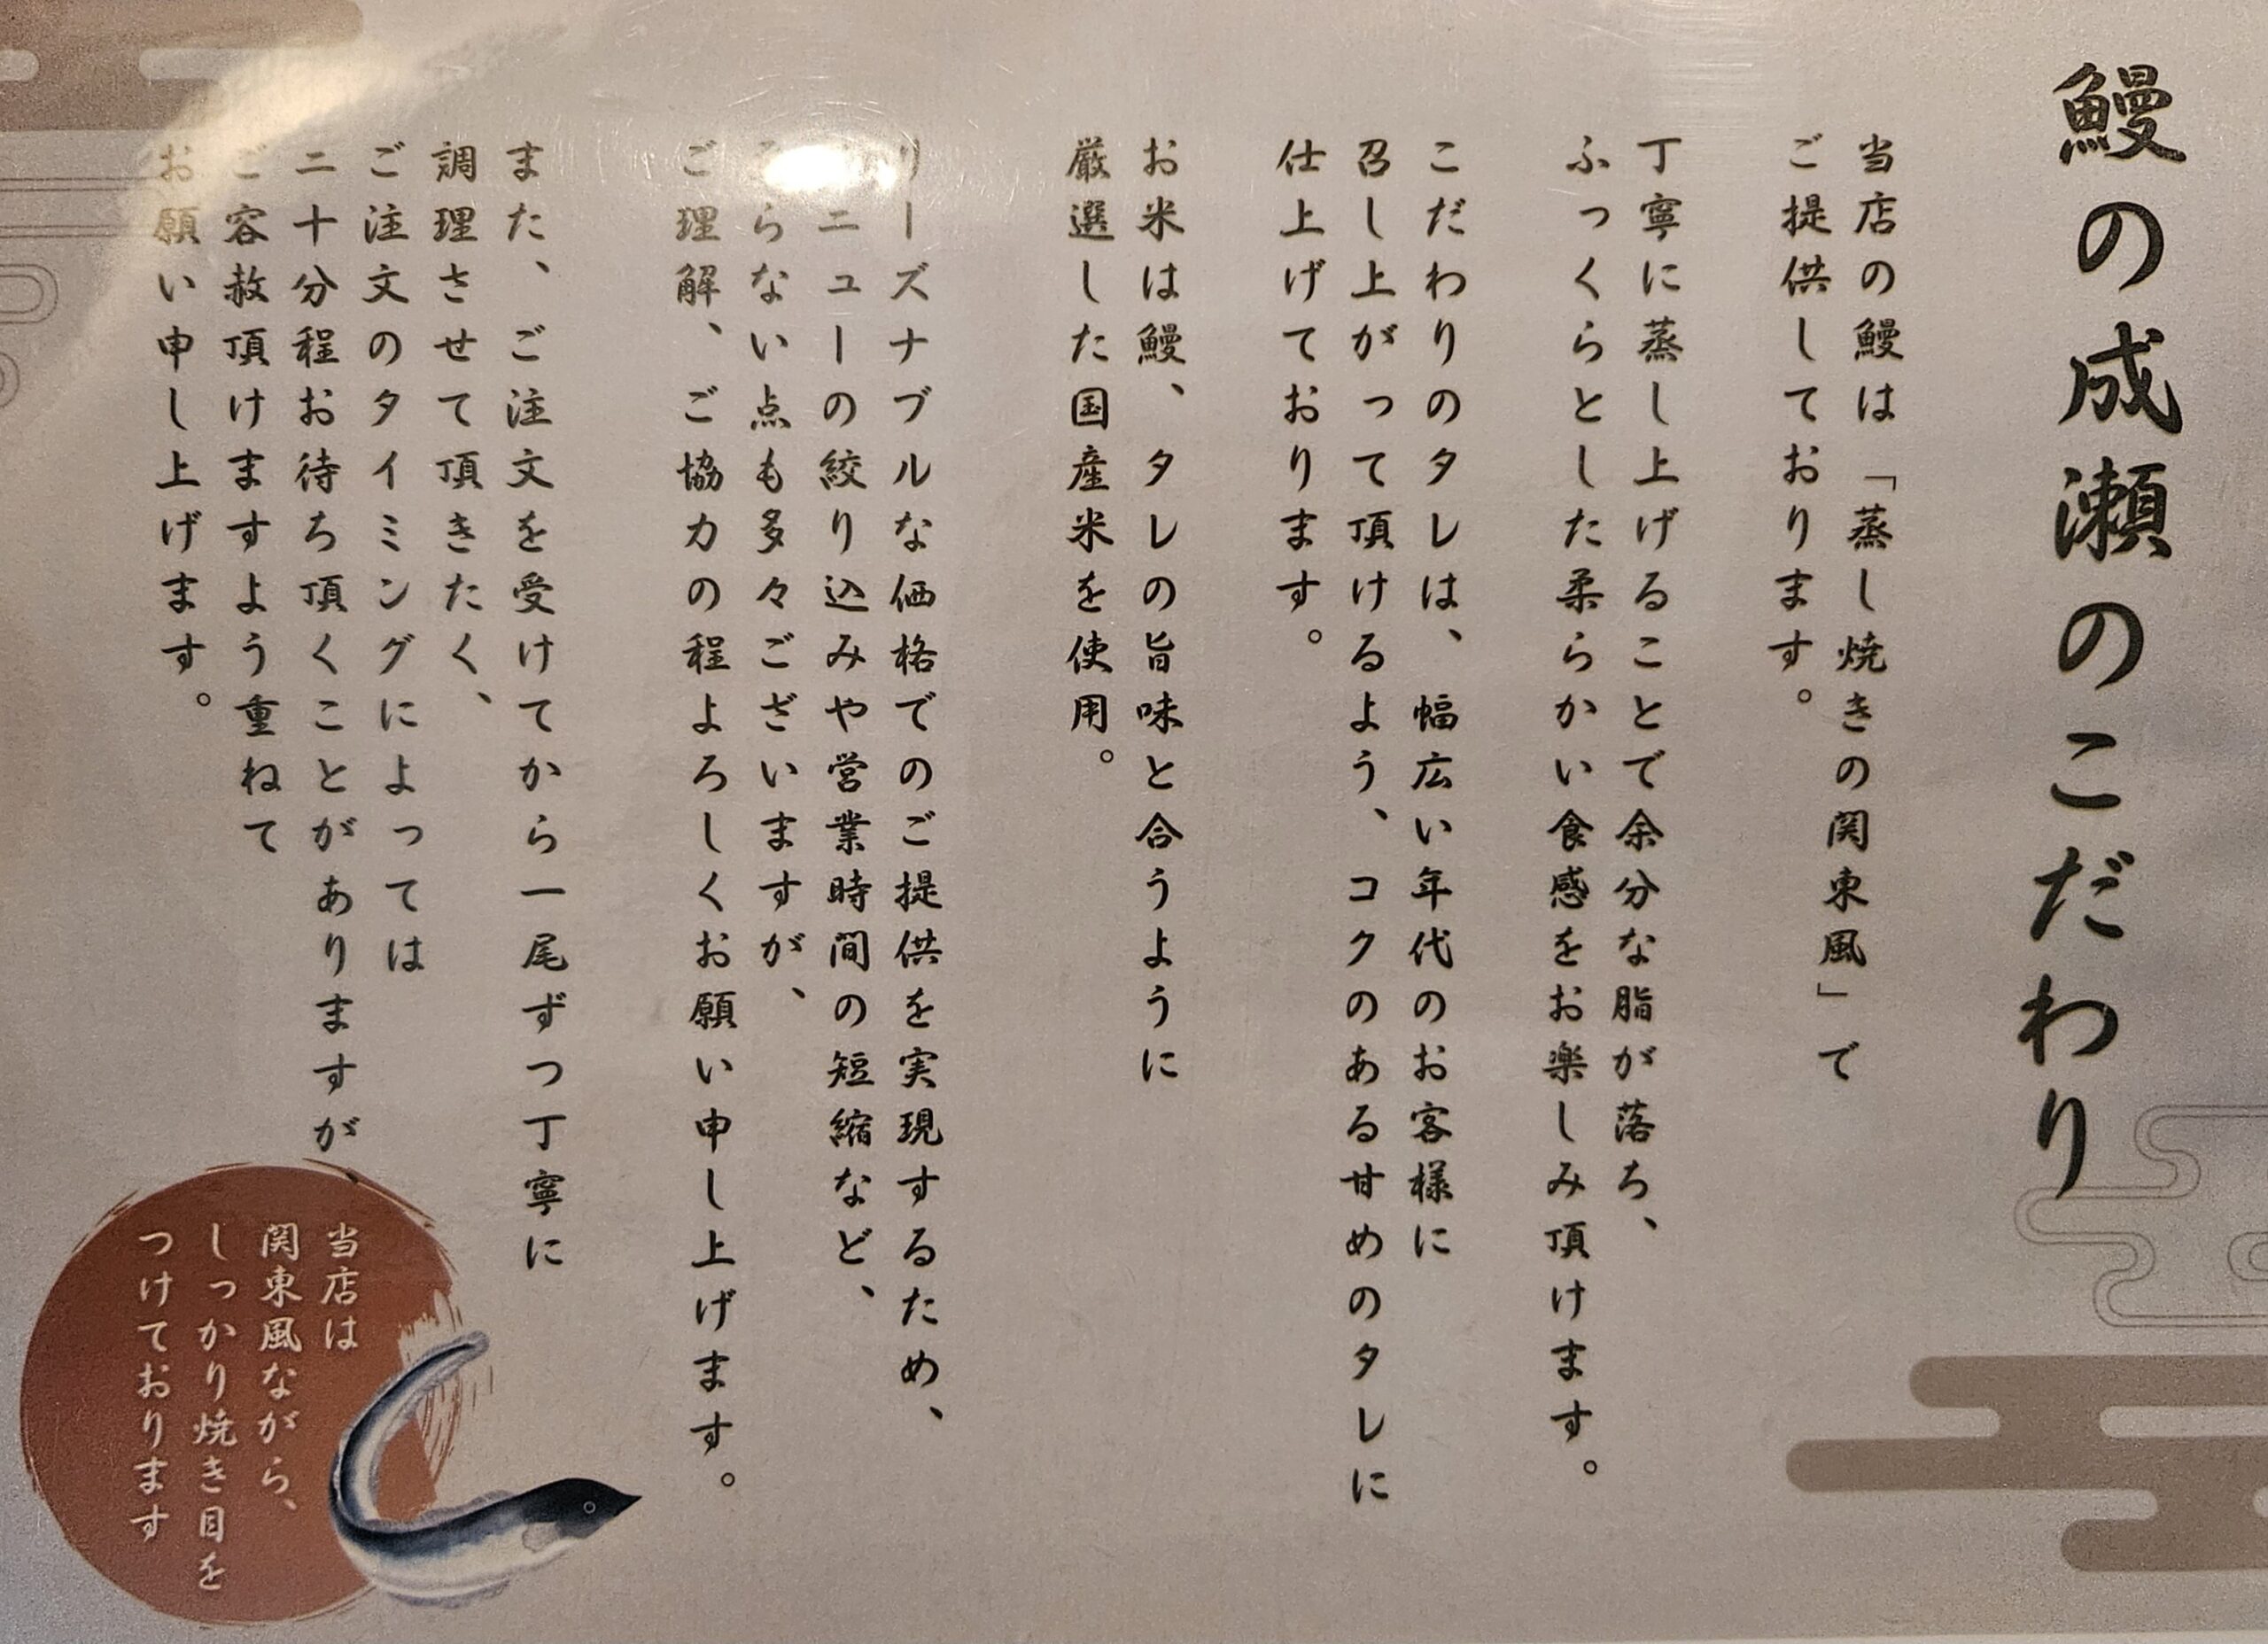 鰻の成瀬のこだわり
当店の鰻は「蒸し焼きの関東風」で
ご提供しております。
丁寧に蒸し上げることで余分な脂が落ち、
ふっくらとした柔らかい食感をお楽しみ頂けます。
こだわりのタレは、幅広い年代のお客様に
召し上がって頂けるよう、コクのある甘めのタレに
仕上げております。
お米は鰻、タレの旨味と合うように
厳選した国産米を使用。
リーズナブルな価格でのご提供を実現するため、
ニューの絞り込みや営業時間の短縮など、
らない点も多々ございますが、
ご理解、ご協力の程よろしくお願い申し上げます。
また、ご注文を受けてから一尾ずつ丁寧に
調理させて頂きたく、
ご注文のタイミングによっては
二十分程お待ち頂くことがありますが、
ご容赦頂けますよう重ねて
お願い申し上げます。
当店は
関東風ながら、
しっかり焼き目を
つけております